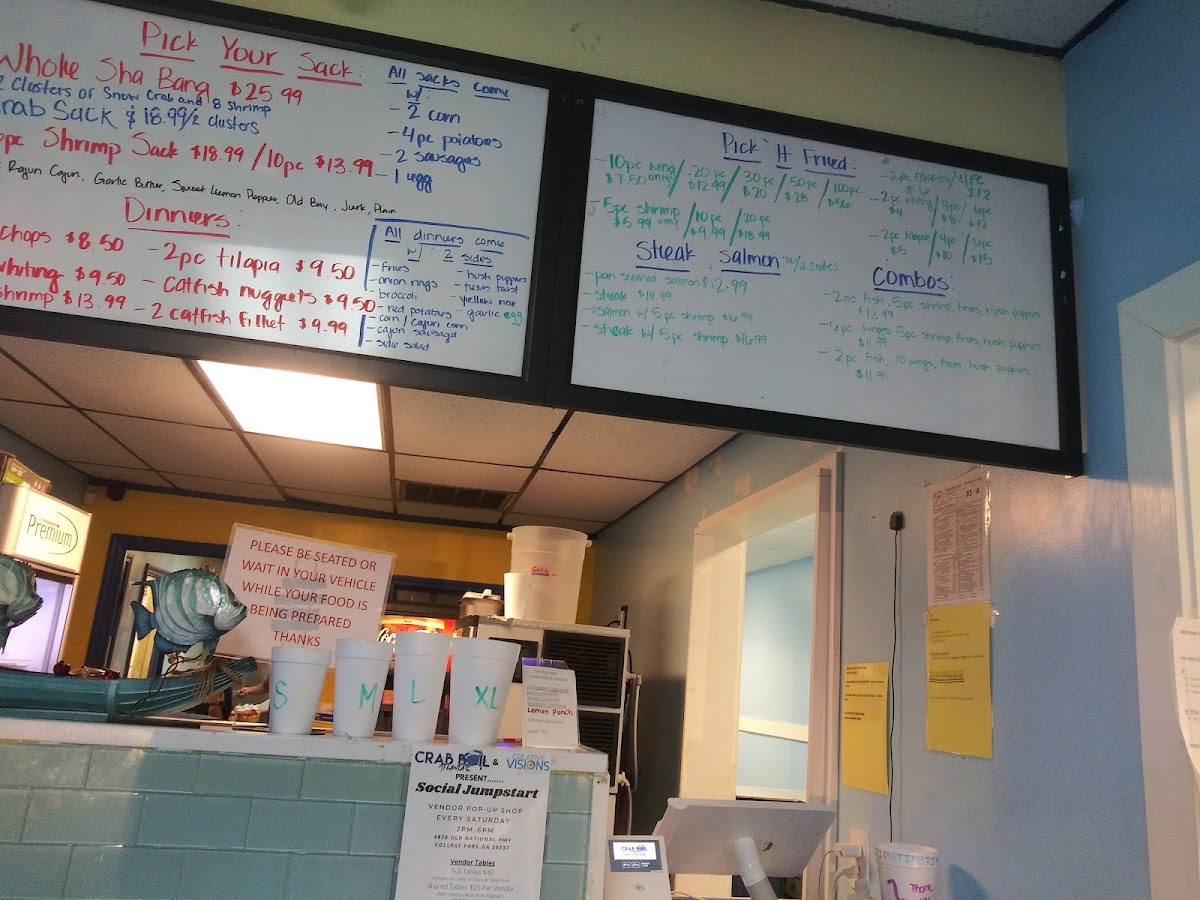 Pick Your Sack:
Whole Sha Bang $25.99
2 clusters of Snow Crab and 8 shrimp
Crab Sack $18.99/2 clusters
pc Shrimp Sack $18.99/10pc $13.99
Rajun Cajun, Garlic Butter, Sweet Lemon Pepper, Old Bay, Jerk, Plain
All sacks come
w/:
- 2 corn
- 4pc potatoes
- 2 sausages
- 1 egg
Dinners:
Chops $8.50
whiting $9.50
Shrimp $13.99
- 2pc tilapia $9.50
- Catfish nuggets $9.50
- 2 catfish fillet $9.99
All dinners come
w/: 2 sides
- fries
- onion rings
- broccoli
- red potatoes
- corn / cajun corn
- cajun sausage
- side salad
- hush puppies
- texas toast
- yellow rice
- garlic egg
Pick It Fried:
- 10pc wing / - 20 pc / 30 pc / 50pc / 100pc
$7.50 only $12.99 $20 $28 $56
- 5pc shrimp / 10pc / 20pc
$5.99 only $9.99 $18.99
- 2pc catfish / 4pc
$6 $12
- 2pc whiting / 4pc / 6pc
$4 $8 $12
- 2pc tilapia / 4pc / 6pc
$5 $10 $15
Steak Salmon: w/2 sides
- pan seared salmon $12.99
- steak $14.99
- salmon w/ 5pc shrimp $16.99
- steak w/ 5pc shrimp $16.99
Combos:
- 2pc fish, 5pc shrimp, fries, hush puppies
$12.99
pc wings, 5pc shrimp, fries, hush puppies
$11.99
- 2pc fish, 10 wings, fries, hush puppies
$11.99
Premium
PLEASE BE SEATED OR
WAIT IN YOUR VEHICLE
WHILE YOUR FOOD IS
BEING PREPARED
THANKS
S M L XL
Lemon Punch
CRAB BOIL &
Atlanta
VISIONS
PRESENT.......
Social Jumpstart
VENDOR POP-UP SHOP
EVERY SATURDAY
2PM-6PM
4825 OLD NATIONAL HWY
COLLEGE PARK, GA 30337
Vendor Tables
Full Tables $40
Shared Tables $25 Per Vendor
CRAB BOIL
93 A
Thank